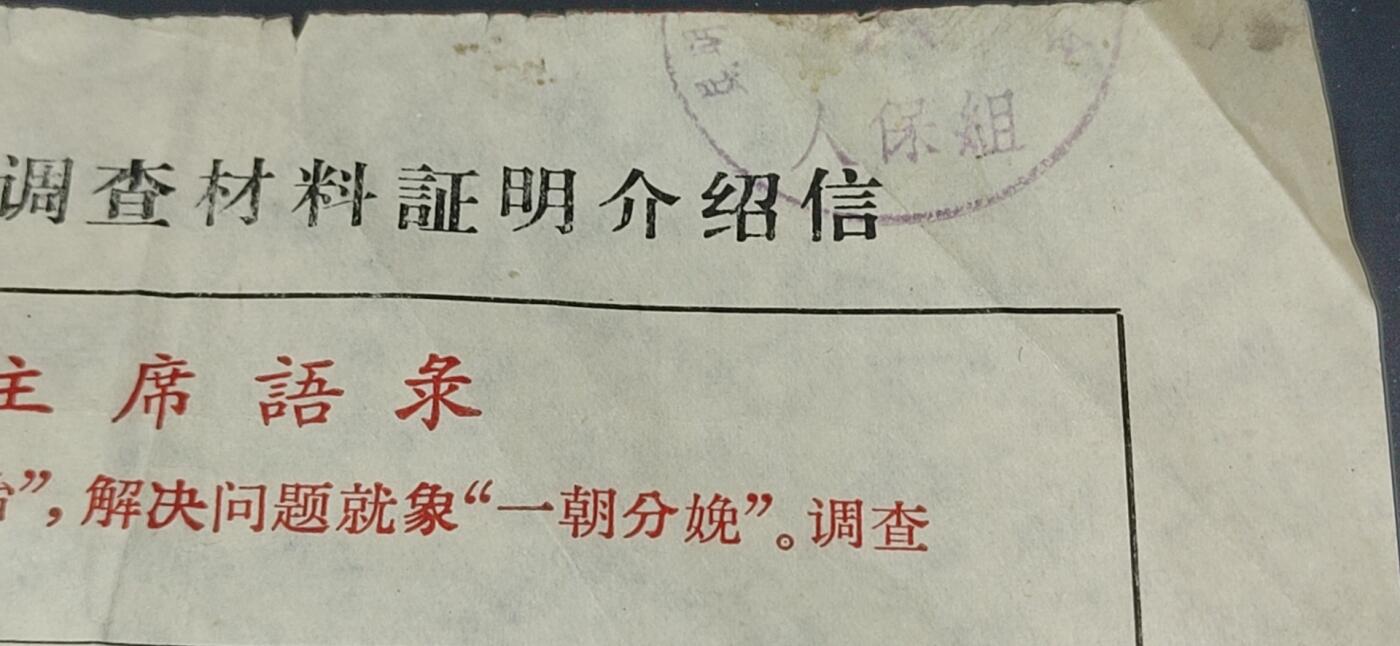 人保组
调查材料証明介绍信
主席語录
”，解决问题就象“一朝分娩”。调查